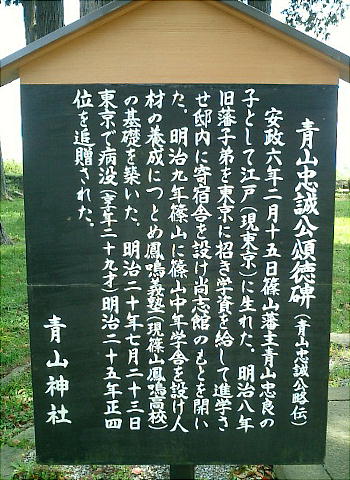 青山忠誠公頌徳碑（青山忠誠公略伝）
安政六年二月十五日篠山藩主青山忠良の
子として江戸（現東京）に生れた。明治八年
旧藩子弟を東京に招き学資を給して進学さ
せ邸内に寄宿舎を設け尚志館のもとを開い
た。明治九年篠山に篠山中年学舎を設け人
材の養成につとめ鳳鳴義塾（現篠山鳳鳴高校）
の基礎を築いた。明治二十年七月二十三日
東京で病没（享年二十九才）明治二十五年正四
位を追贈された。
青山神社